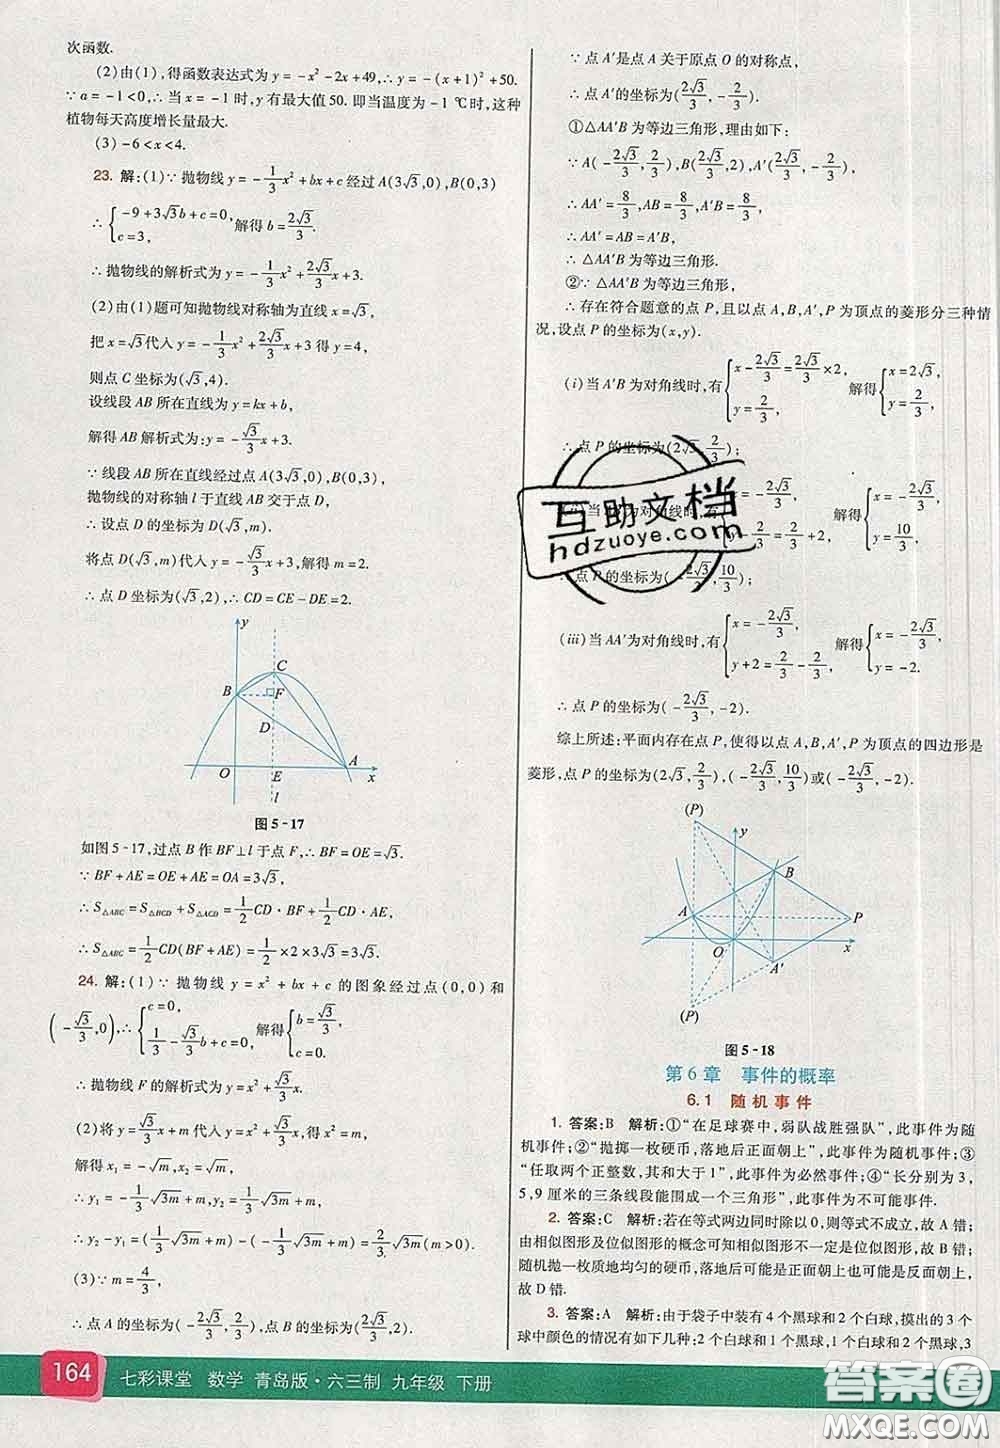 次函数.
(2)由(1),得函数表达式为 y=-x²-2x+49,∴y=-(x+1)²+50.
∵a=-1<0,∴当 x=-1时,y有最大值50. 即当温度为-1 ℃时,这种
植物每天高度增长量最大.
(3)-6<x<4.
23. 解:(1)∵抛物线 y=-1/3x²+bx+c经过A(3√3,0),B(0,3)
∴{-9+3√3b+c=0, c=3, 解得 b=2√3/3.
∴抛物线的解析式为 y=-1/3x²+2√3/3x+3.
(2)由(1)题可知抛物线对称轴为直线 x=√3,
把 x=√3代入 y=-1/3x²+2√3/3x+3得 y=4,
则点 C 坐标为(√3,4).
设线段 AB 所在直线为 y=kx+b,
解得 AB 解析式为:y=-√3/3x+3.
∵线段 AB 所在直线经过点 A(3√3,0)、B(0,3),
抛物线的对称轴 l 于直线 AB 交于点 D,
∴设点 D 的坐标为(√3,m).
将点 D(√3,m)代入 y=-√3/3x+3,解得 m=2.
∴点 D 坐标为(√3,2),∴CD=CE-DE=2.
y
C
B
F
D
O
E
A
x
l
图5-17
如图5-17,过点 B 作 BF⊥l 于点 F,∴BF=OE=√3.
∵BF+AE=OE+AE=OA=3√3,
∴S△ABC=S△BCD+S△ACD=1/2CD·BF+1/2CD·AE,
∴S△ABC=1/2CD(BF+AE)=1/2×2×3√3=3√3.
24. 解:(1)∵抛物线 y=x²+bx+c 的图象经过点(0,0)和
(-√3/3,0),∴{c=0, 1/3-√3/3b+c=0, 解得{b=√3/3, c=0,
∴抛物线 F 的解析式为 y=x²+√3/3x.
(2)将 y=√3/3x+m 代入 y=x²+√3/3x,得 x²=m,
解得 x₁=-√m,x₂=√m,
∴y₁=-1/3√3m+m,y₂=1/3√3m+m,
∴y₂-y₁=(1/3√3m+m)-(-1/3√3m+m)=2/3√3m(m>0).
(3)∵m=4/3,
∴点 A 的坐标为(-2√3/3,2/3),点 B 的坐标为(2√3/3,2).
∵点 A′是点 A 关于原点 O 的对称点,
∴点 A′的坐标为(2√3/3,-2/3).
①△AA′B 为等边三角形,理由如下:
∵A(-2√3/3,2/3),B(2√3/3,2),A′(2√3/3,-2/3),
∴AA′=8/3,AB=8/3,A′B=8/3,
∴AA′=AB=A′B,
∴△AA′B 为等边三角形.
②∵△AA′B 为等边三角形,
∴存在符合题意的点 P,且以点 A、B、A′、P 为顶点的菱形分三种情
况,设点 P 的坐标为(x,y).
(i)当 A′B 为对角线时,有{x-2√3/3=2√3/3×2, y=2/3, 解得{x=2√3, y=2/3,
∴点 P 的坐标为(2√3,2/3);
当 为对角线时,有{x=-2√3/3, y-2/3=2/3+2, 解得{x=-2√3/3, y=10/3,
∴点 P 的坐标为(-2√3/3,10/3);
(iii)当 AA′为对角线时,有{x=-2√3/3, y+2=2/3-2/3, 解得{x=-2√3/3, y=-2.
∴点 P 的坐标为(-2√3/3,-2).
综上所述:平面内存在点 P,使得以点 A、B、A′、P 为顶点的四边形是
菱形,点 P 的坐标为(2√3,2/3)、(-2√3/3,10/3)或(-2√3/3,-2).
(P)
y
B
A
P
O
x
A′
(P)
图5-18
第6章 事件的概率
6.1 随机事件
1. 答案:B 解析:①“在足球赛中,弱队战胜强队”,此事件为随
机事件;②“抛掷一枚硬币,落地后正面朝上”,此事件为随机事件;③
“任取两个正整数,其和大于1”,此事件为必然事件;④“长分别为3,
5,9厘米的三条线段能围成一个三角形”,此事件为不可能事件.
2. 答案:C 解析:若在等式两边同时除以0,则等式不成立,故 A 错;
由相似图形及位似图形的概念可知相似图形不一定是位似图形,故 B 错;
随机抛一枚质地均匀的硬币,落地后可能是正面朝上也可能是反面朝上,
故 D 错.
3. 答案:A 解析:由于袋子中装有4个黑球和2个白球,摸出的3个
球中颜色的情况有如下几种:2个白球和1个黑球、1个白球和2个黑球、3
互助文档
hdzuoye.com
164 七彩课堂 数学 青岛版·六三制 九年级 下册
答案圈
MXQE.COM